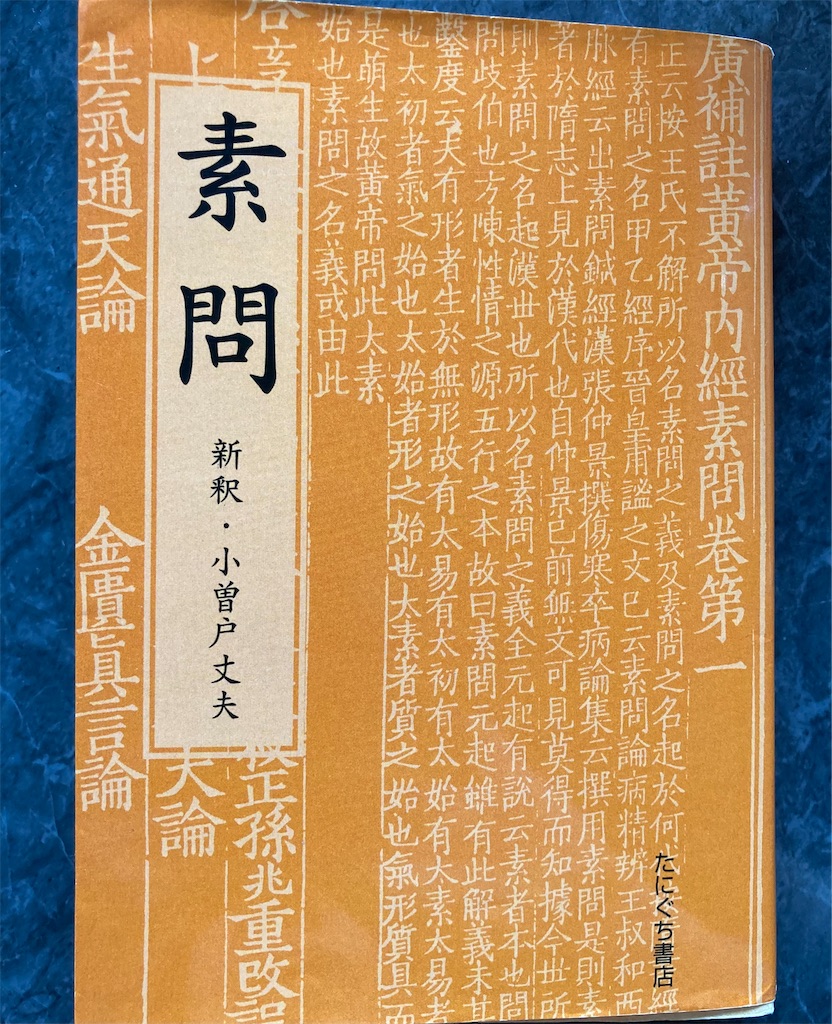 廣補註黃帝内經素問卷第一
正云按王氏不解所以名素問之義及素問之名起於何
經
有素問之名甲乙經序晉皇甫謐之文已云素問論病精辨王叔和西
脉經云出素問鍼經漢張仲景撰傷寒卒病論集云撰用素問是則素
著於隋志上見於漢代也自仲景已前無文可見莫得而知據今世所
則素問之名起漢世也所以名素問之義全元起有說云素者本也問
問歧伯也方陳性情之源五行之本故曰素問元起雖有此解義未甚
鑿度云夫有形者生於無形故有太易有太初有太始有太素太易者
也太初者氣之始也太始者形之始也太素者質之始也氣形質具而
是萌生故黃帝問此太素
始也素問之名義或由此
たにぐち書店
正孫兆重改誤
素問
新釈・小曽戸丈夫
上
天論
生氣通天論
金匱真言論